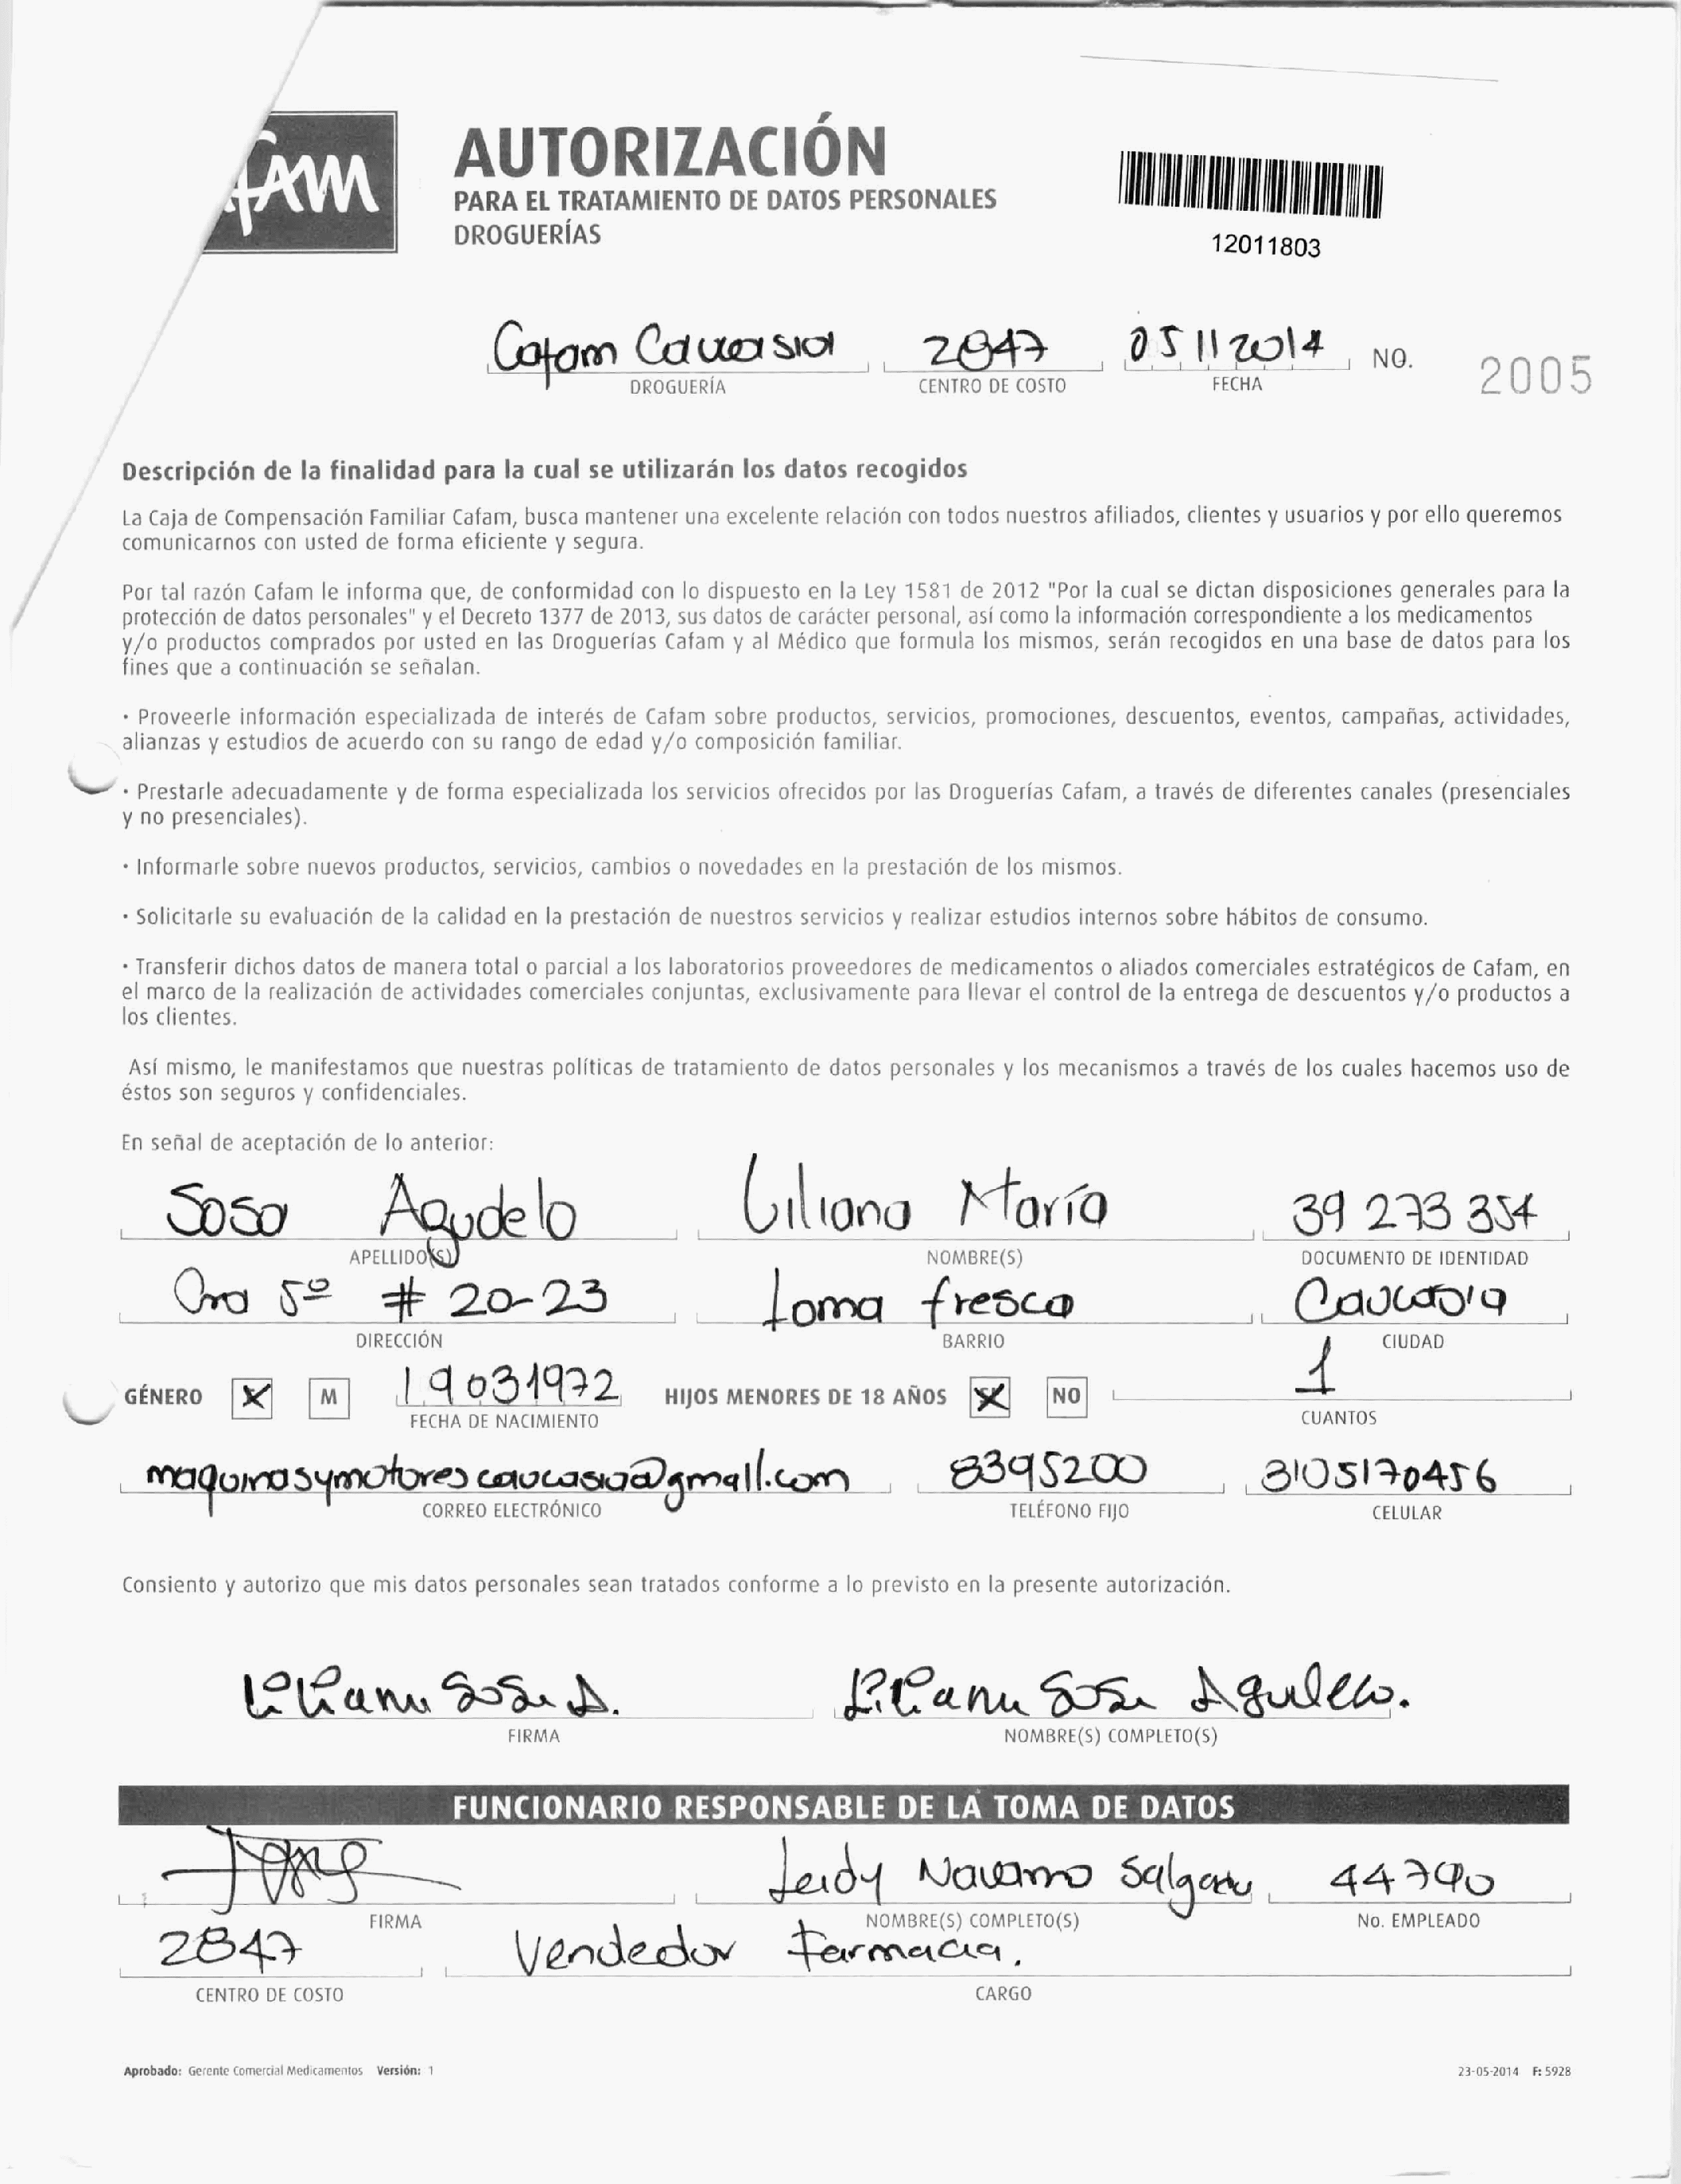 afam
AUTORIZACIÓN
PARA EL TRATAMIENTO DE DATOS PERSONALES
DROGUERÍAS
12011803
Cafam Caucasia 2847 05 11 2014 NO. 2005
DROGUERÍA CENTRO DE COSTO FECHA
Descripción de la finalidad para la cual se utilizarán los datos recogidos
La Caja de Compensación Familiar Cafam, busca mantener una excelente relación con todos nuestros afiliados, clientes y usuarios y por ello queremos
comunicarnos con usted de forma eficiente y segura.
Por tal razón Cafam le informa que, de conformidad con lo dispuesto en la Ley 1581 de 2012 "Por la cual se dictan disposiciones generales para la
protección de datos personales" y el Decreto 1377 de 2013, sus datos de carácter personal, así como la información correspondiente a los medicamentos
y/o productos comprados por usted en las Droguerías Cafam y al Médico que formula los mismos, serán recogidos en una base de datos para los
fines que a continuación se señalan.
· Proveerle información especializada de interés de Cafam sobre productos, servicios, promociones, descuentos, eventos, campañas, actividades,
alianzas y estudios de acuerdo con su rango de edad y/o composición familiar.
· Prestarle adecuadamente y de forma especializada los servicios ofrecidos por las Droguerías Cafam, a través de diferentes canales (presenciales
y no presenciales).
· Informarle sobre nuevos productos, servicios, cambios o novedades en la prestación de los mismos.
· Solicitarle su evaluación de la calidad en la prestación de nuestros servicios y realizar estudios internos sobre hábitos de consumo.
· Transferir dichos datos de manera total o parcial a los laboratorios proveedores de medicamentos o aliados comerciales estratégicos de Cafam, en
el marco de la realización de actividades comerciales conjuntas, exclusivamente para llevar el control de la entrega de descuentos y/o productos a
los clientes.
Así mismo, le manifestamos que nuestras políticas de tratamiento de datos personales y los mecanismos a través de los cuales hacemos uso de
éstos son seguros y confidenciales.
En señal de aceptación de lo anterior:
Sosa Agudelo Liliana María 39 273 354
APELLIDO(S) NOMBRE(S) DOCUMENTO DE IDENTIDAD
Cra 5º # 20-23 Loma fresca Caucasia
DIRECCIÓN BARRIO CIUDAD
GÉNERO X M 19031972 HIJOS MENORES DE 18 AÑOS X NO 1
FECHA DE NACIMIENTO CUANTOS
maquinasymotorescaucasia@gmail.com 8395200 3105170456
CORREO ELECTRÓNICO TELÉFONO FIJO CELULAR
Consiento y autorizo que mis datos personales sean tratados conforme a lo previsto en la presente autorización.
Liliana Sosa A. Liliana Sosa Agudelo.
FIRMA NOMBRE(S) COMPLETO(S)
FUNCIONARIO RESPONSABLE DE LA TOMA DE DATOS
Leidy Navarro Salgado 44790
FIRMA NOMBRE(S) COMPLETO(S) No. EMPLEADO
2847 Vendedor Farmacia.
CENTRO DE COSTO CARGO
Aprobado: Gerente Comercial Medicamentos Versión: 1 23-05-2014 F: 5928